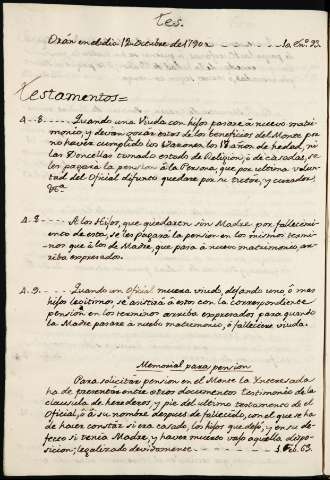 Tes.
Orán en el dia 12 de octubre de 1790 . . . . . . . . . la En.º 93.
Testamentos=
A - - 8. - - - - Quando una Viuda con hijos pasare á nuevo matri-
monio, y devan gozar estos de los beneficios del Monte por
no haver cumplido los Varones los 18 años de hedad, ni
las Doncellas tomado estado de Religion, ó de casadas, se
les pagará la pension á la Persona, que por ultima volun-
tad del Oficial difunto quedare por su tutor, y curador,
&c.ª
A - - 8 - - - - A los Hijos, que quedaren sin Madre por falleci-
miento de esta, se les pagará la pension en los mismos termi-
nos que á los de Madre, que pasa á nuevo matrimonio, ar-
riba expresados.
A - - 9. - - - - Quando un oficial muera viudo, dejando uno ó mas
hijos legitimos, se asistirá á estos con la correspondiente
pension en los terminos arriba expresados para quando
la Madre pasare á nuebo matrimonio, ó fallesciere viuda.
Memorial para pension
Para solicitar pension en el Monte la Ynteresada
ha de presentar entre otros documentos testimonio de la
clausula de herederos, y pie del ultimo testamento de el
Oficial, ó á su nombre despues de fallecido, con el que se ha
de hacer constár si era casado, los hijos que dejó, y en su de-
fecto si tenia Madre, y haver muerto vajo aquella dispo-
sicion; legalizado devidamente. - - - - - - - - 3 Feb. 63.